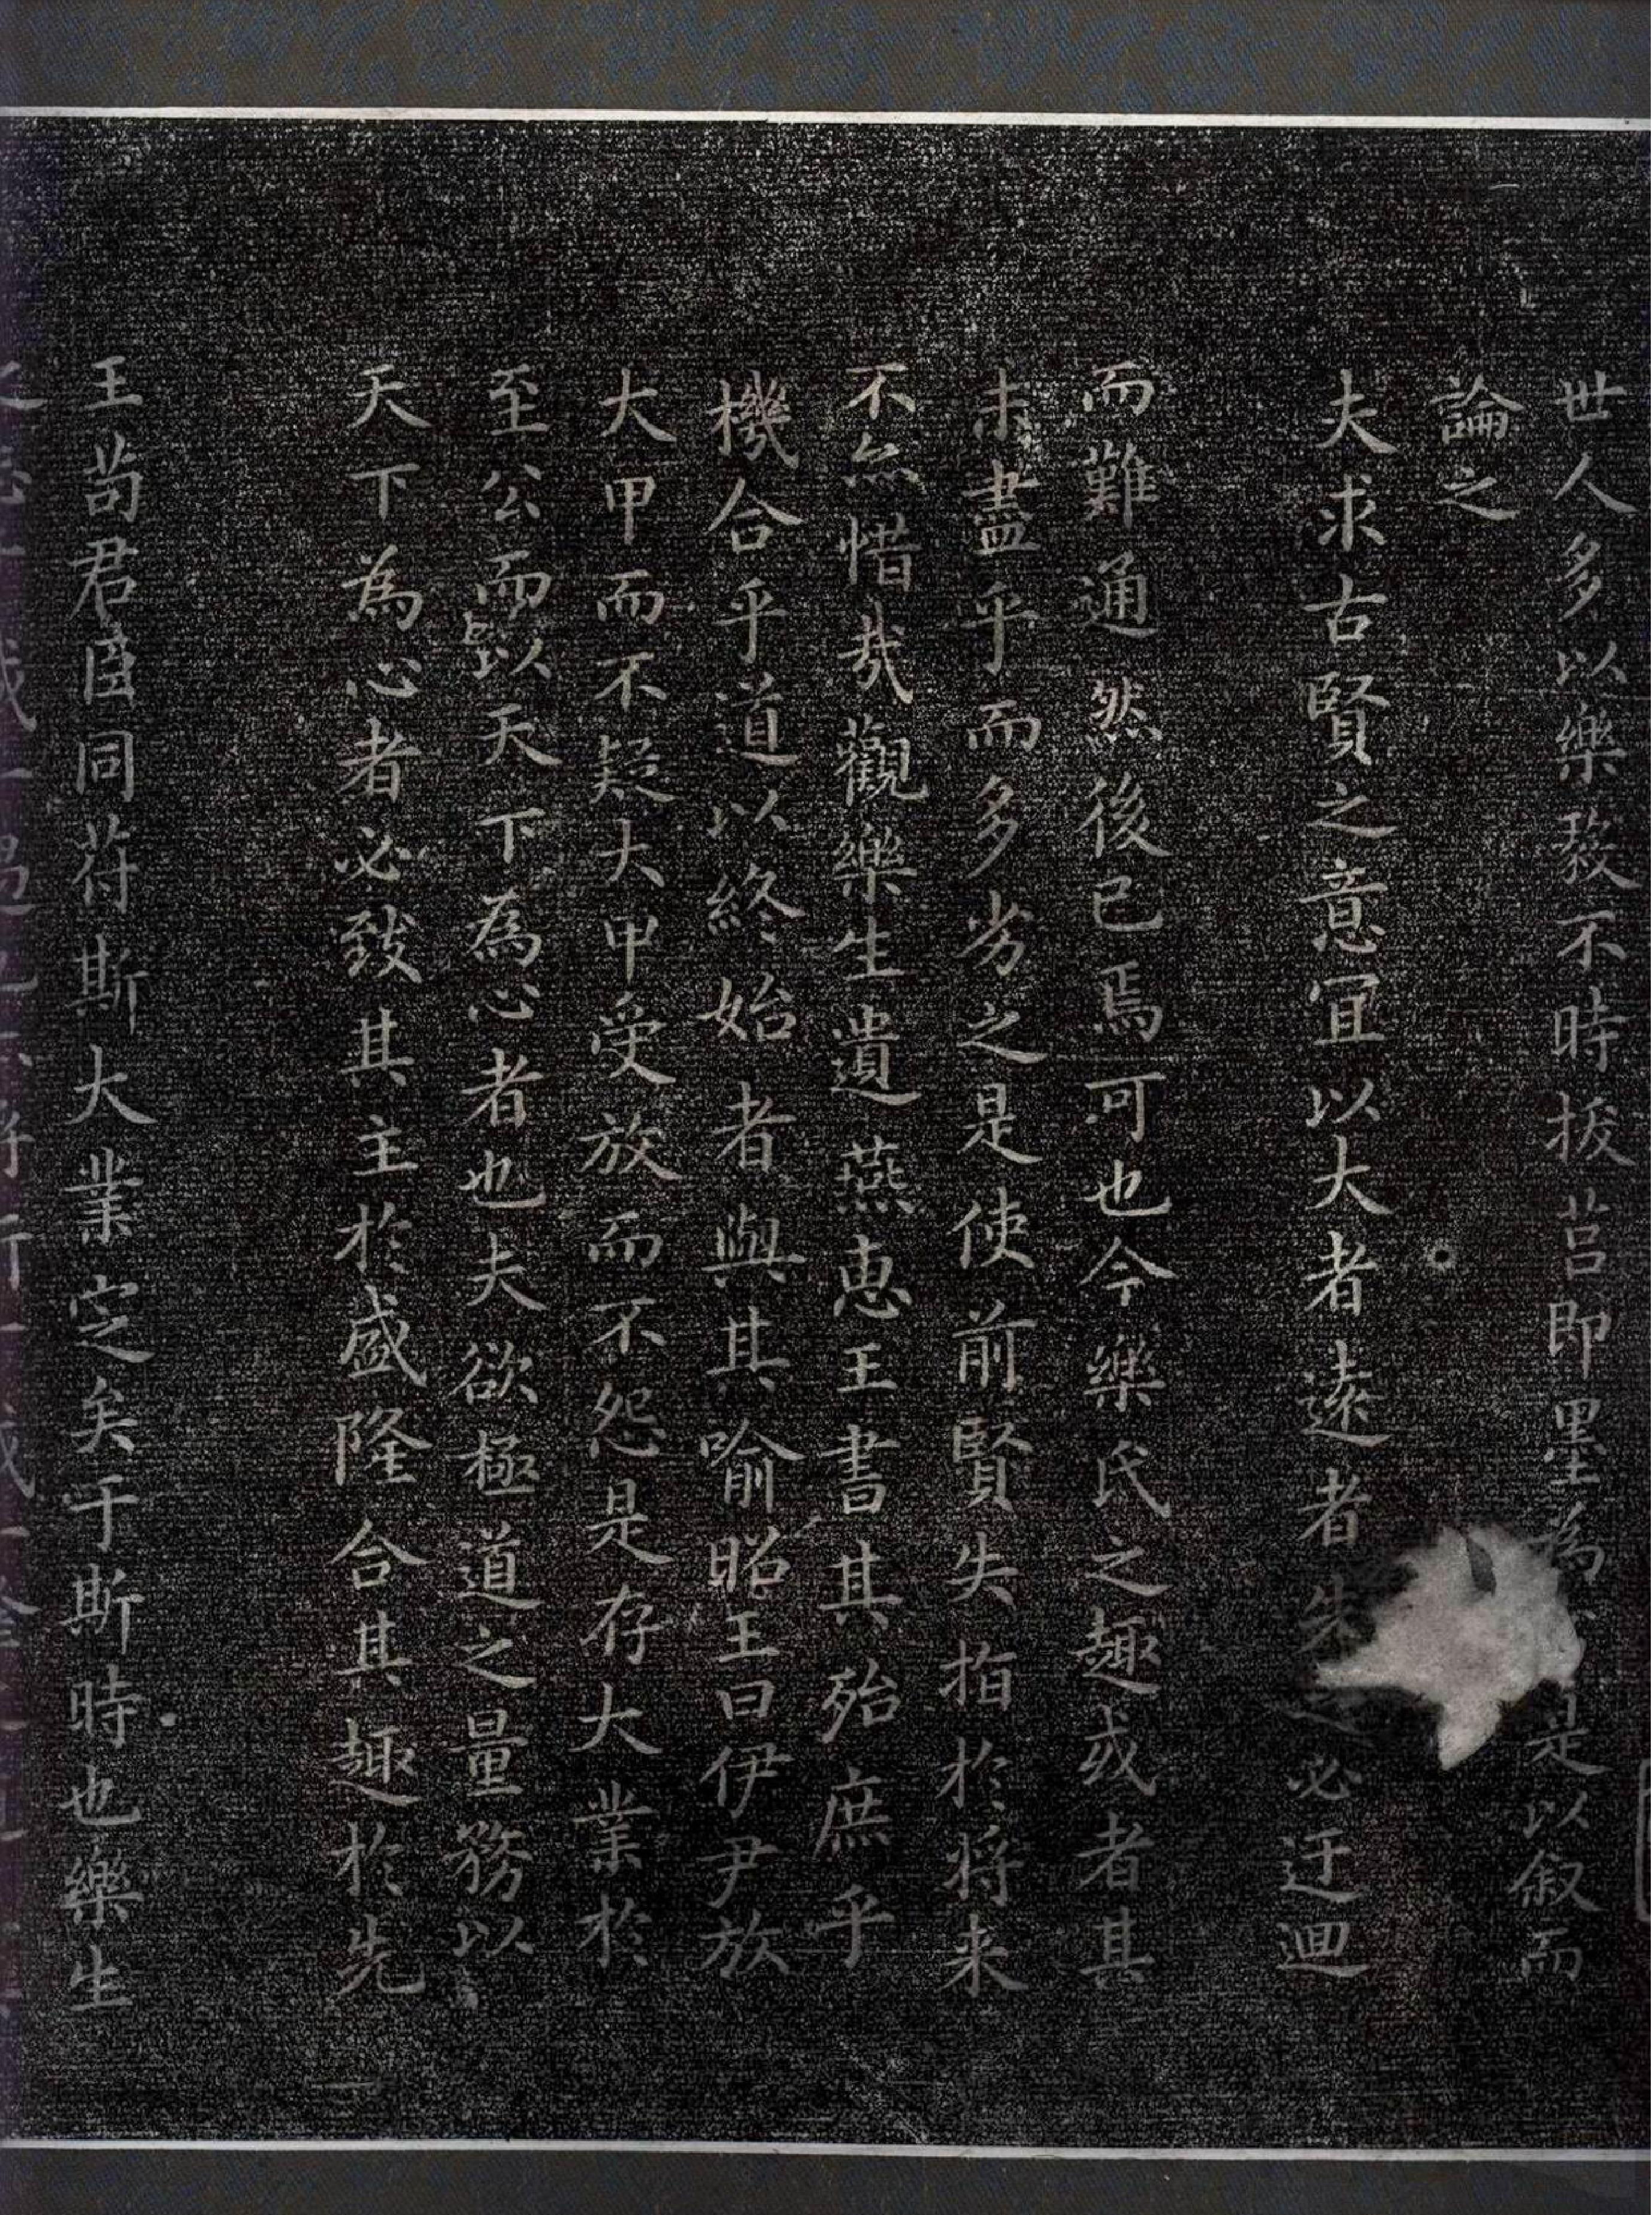 世人多以樂毅不時拔莒即墨為是以叙而
論之
夫求古賢之意宜以大者遠者先之必迂迴
而難通然後已焉可也今樂氏之趣或者其
未盡乎而多劣之是使前賢失指於将来
不然惜哉觀樂生遺燕惠王書其殆庶乎
機合乎道以終始者與其喻昭王曰伊尹放
大甲而不疑大甲受放而不怨是存大業於
至公而以天下為心者也夫欲極道之量務以
天下為心者必致其主於盛隆合其趣於先
王苟君臣同苻斯大業定矣于斯時也樂生